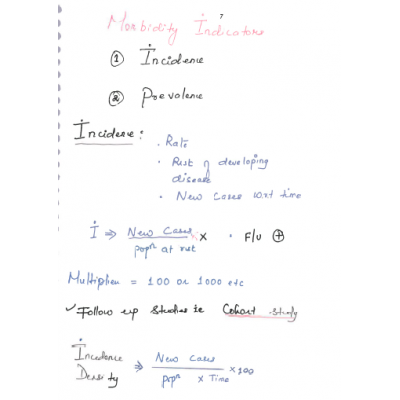 Morbidity Indicators
7
① Incidence
② Prevalence
Incidence :
· Rate
· Risk of developing
disease
· New Cases wrt time
I ⇒ New Cases / popn at risk × · F/U ⊕
Multiplier = 100 or 1000 etc
✓ Follow up Studies ie Cohort study
Incidence Density ⇒ New Cases / popn × Time × 100